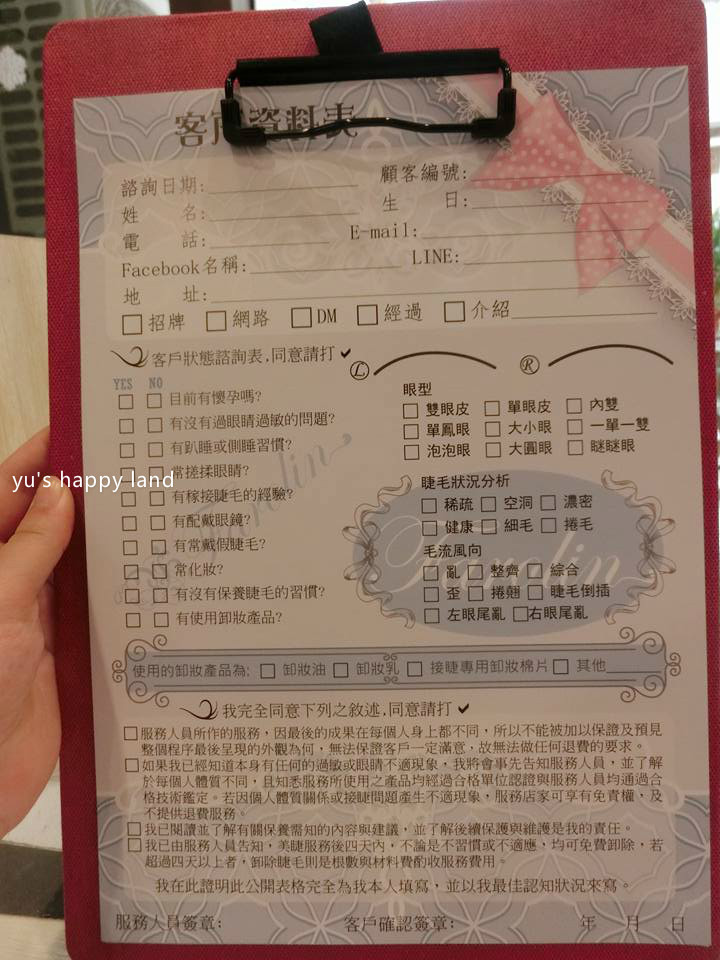 客戶資料表
諮詢日期: 顧客編號:
姓 名: 生 日:
電 話: E-mail:
Facebook名稱: LINE:
地 址:
招牌 網路 DM 經過 介紹
客戶狀態諮詢表,同意請打✔
L R
YES NO
目前有懷孕嗎?
有沒有過眼睛過敏的問題?
有趴睡或側睡習慣?
常搓揉眼睛?
有稼接睫毛的經驗?
有配戴眼鏡?
有常戴假睫毛?
常化妝?
有沒有保養睫毛的習慣?
有使用卸妝產品?
眼型
雙眼皮 單眼皮 內雙
單鳳眼 大小眼 一單一雙
泡泡眼 大圓眼 瞇瞇眼
睫毛狀況分析
稀疏 空洞 濃密
健康 細毛 捲毛
毛流風向
亂 整齊 綜合
歪 捲翹 睫毛倒插
左眼尾亂 右眼尾亂
yu's happy land
使用的卸妝產品為: 卸妝油 卸妝乳 接睫專用卸妝棉片 其他
我完全同意下列之敘述,同意請打✔
服務人員所作的服務，因最後的成果在每個人身上都不同，所以不能被加以保證及預見
整個程序最後呈現的外觀為何，無法保證客戶一定滿意，故無法做任何退費的要求。
如果我已經知道本身有任何的過敏或眼睛不適現象，我將會事先告知服務人員，並了解
於每個人體質不同，且知悉服務所使用之產品均經過合格單位認證與服務人員均通過合
格技術鑑定。若因個人體質關係或接睫問題產生不適現象，服務店家可享有免責權，及
不提供退費服務。
我已閱讀並了解有關保養需知的內容與建議，並了解後續保護與維護是我的責任。
我已由服務人員告知，美睫服務後四天內，不論是不習慣或不適應，均可免費卸除，若
超過四天以上者，卸除睫毛則是根數與材料費酌收服務費用。
我在此證明此公開表格完全為我本人填寫，並以我最佳認知狀況來寫。
服務人員簽章: 客戶確認簽章: 年 月 日